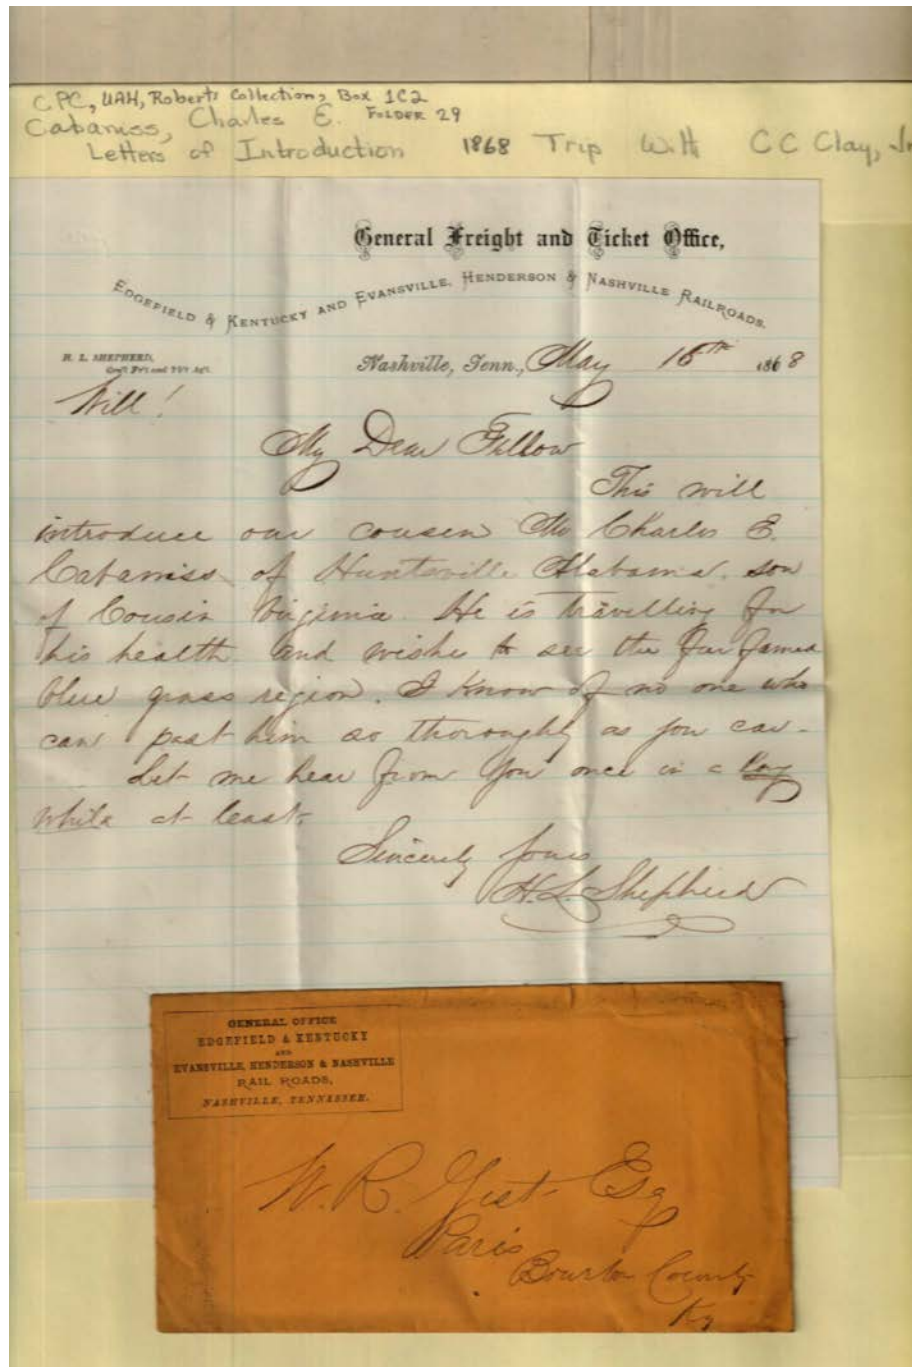 CPC, UAH, Roberts Collection, Box 1C2
Cabaniss, Charles E. FOLDER 29
Letters of Introduction 1868 Trip With CC Clay, Jr
General Freight and Ticket Office,
EDGEFIELD & KENTUCKY AND EVANSVILLE, HENDERSON & NASHVILLE RAILROADS.
H. L. SHEPHERD,
Gen'l Fr't and Tk't Ag't.
Nashville, Tenn., May 16th 1868
Will!
My Dear Fellow
This will
introduce our cousen Mr Charles E.
Cabaniss of Huntsville Alabama. son
of Cousin Virginia. He is travelling for
his health and wishes to see the far famed
blue grass region. I know of no one who
can post him so thoroughly as you can.
Let me hear from you once in a long
while at least.
Sincerely Yours
H. L. Shepherd
GENERAL OFFICE
EDGEFIELD & KENTUCKY
AND
EVANSVILLE, HENDERSON & NASHVILLE
RAIL ROADS,
NASHVILLE, TENNESSEE.
W. R. Gist Esq
Paris
Bourbon County
Ky